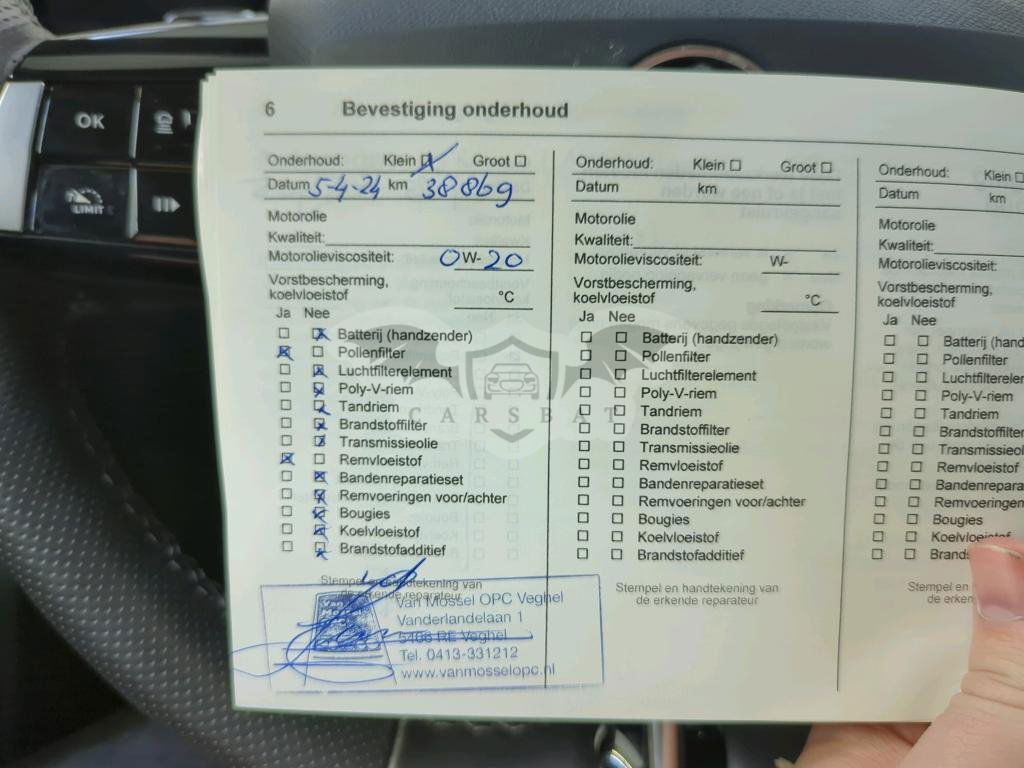 OK
LIMIT
6 Bevestiging onderhoud
Onderhoud: Klein Groot
Datum 5-4-24 km 38869
Motorolie
Kwaliteit:
Motorolieviscositeit: 0W-20
Vorstbescherming,
koelvloeistof °C
Ja Nee
Batterij (handzender)
Pollenfilter
Luchtfilterelement
Poly-V-riem
Tandriem
Brandstoffilter
Transmissieolie
Remvloeistof
Bandenreparatieset
Remvoeringen voor/achter
Bougies
Koelvloeistof
Brandstofadditief
Stempel en handtekening van
de erkende reparateur
Van Mossel OPC Veghel
Vanderlandelaan 1
5466 RE Veghel
Tel. 0413-331212
www.vanmosselopc.nl
Onderhoud: Klein Groot
Datum km
Motorolie
Kwaliteit:
Motorolieviscositeit: W-
Vorstbescherming,
koelvloeistof °C
Ja Nee
Batterij (handzender)
Pollenfilter
Luchtfilterelement
Poly-V-riem
Tandriem
Brandstoffilter
Transmissieolie
Remvloeistof
Bandenreparatieset
Remvoeringen voor/achter
Bougies
Koelvloeistof
Brandstofadditief
Stempel en handtekening van
de erkende reparateur
Onderhoud: Klein
Datum km
Motorolie
Kwaliteit:
Motorolieviscositeit:
Vorstbescherming,
koelvloeistof
Ja Nee
Batterij (hand
Pollenfilter
Luchtfilterele
Poly-V-riem
Tandriem
Brandstoffilter
Transmissieol
Remvloeistof
Bandenrepara
Remvoeringen
Bougies
Koelvloei
Brands
Stempel en
de erken
CARSBAT